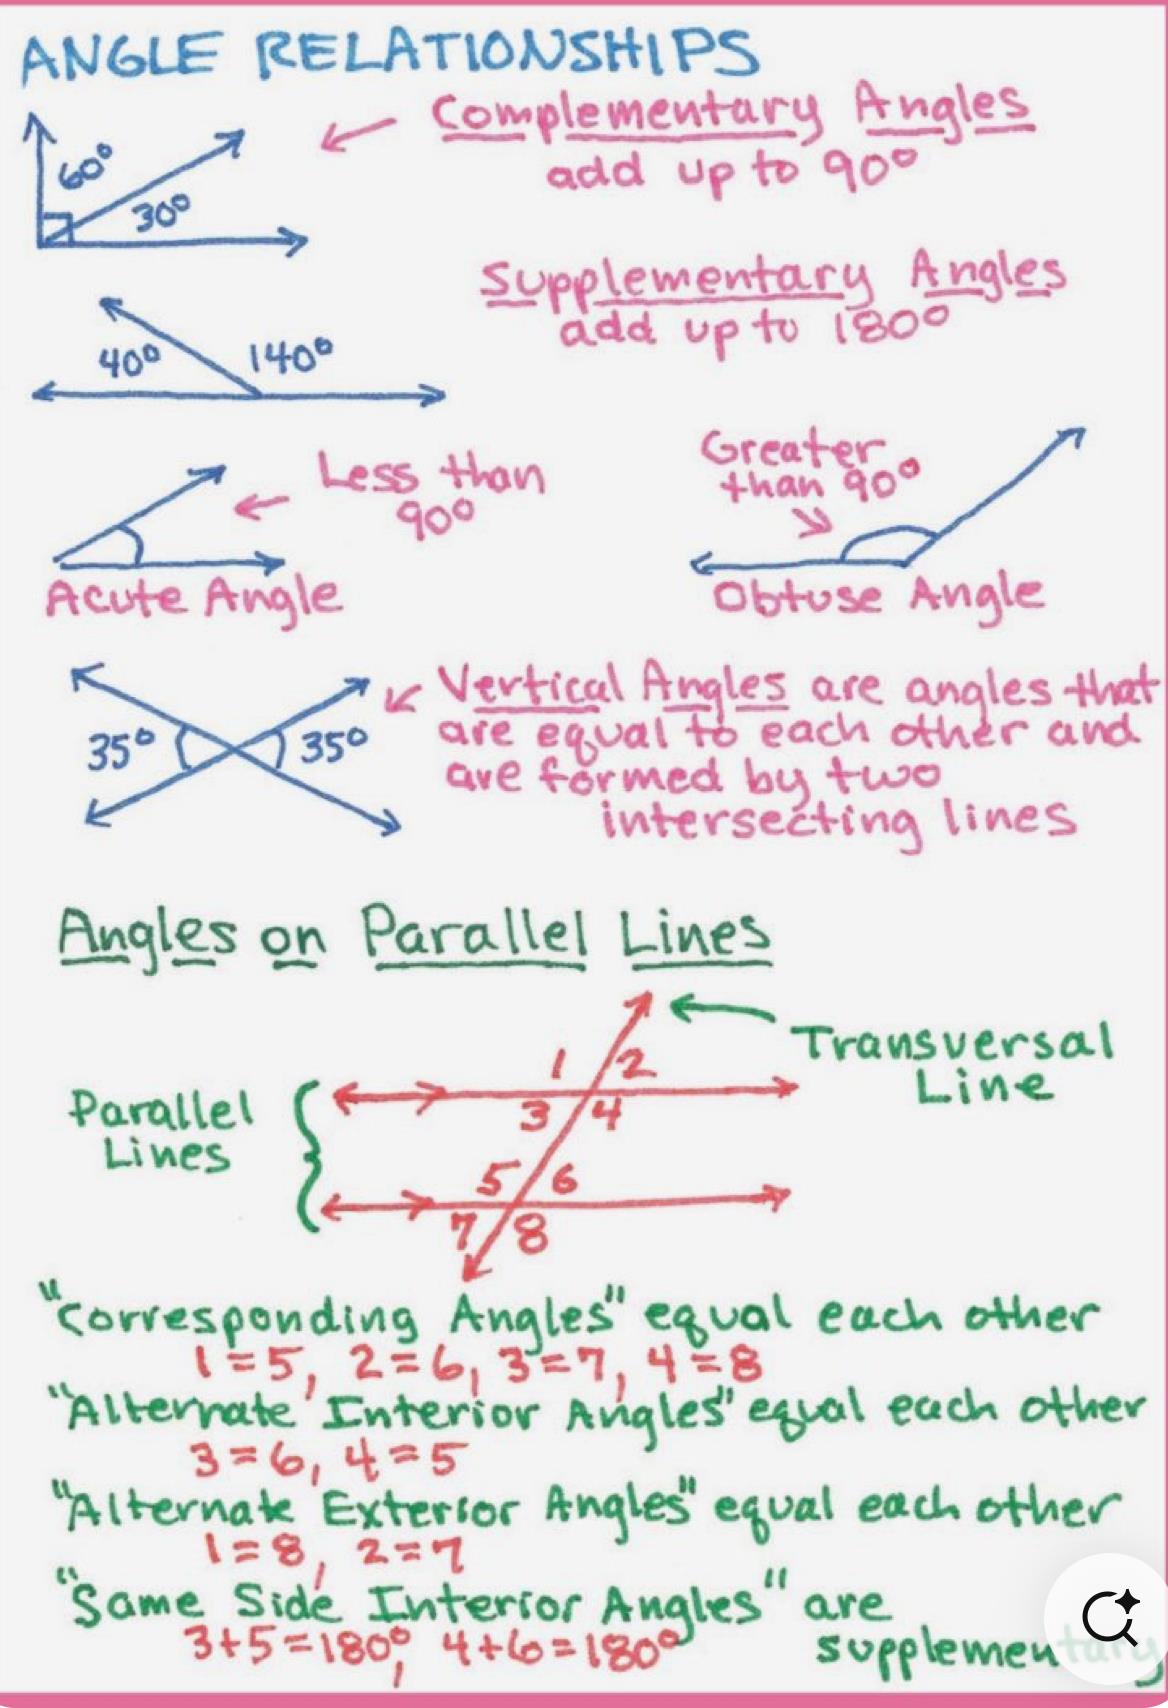 ANGLE RELATIONSHIPS
Complementary Angles
add up to 90°
60°
30°
Supplementary Angles
add up to 180°
40° 140°
Less than
90°
Acute Angle
Greater
than 90°
Obtuse Angle
35° 35°
Vertical Angles are angles that
are equal to each other and
are formed by two
intersecting lines
Angles on Parallel Lines
Transversal
Line
Parallel
Lines
1 2
3 4
5 6
7 8
"Corresponding Angles" equal each other
1=5, 2=6, 3=7, 4=8
"Alternate Interior Angles" equal each other
3=6, 4=5
"Alternate Exterior Angles" equal each other
1=8, 2=7
"Same Side Interior Angles" are
supplementary
3+5=180°, 4+6=180°